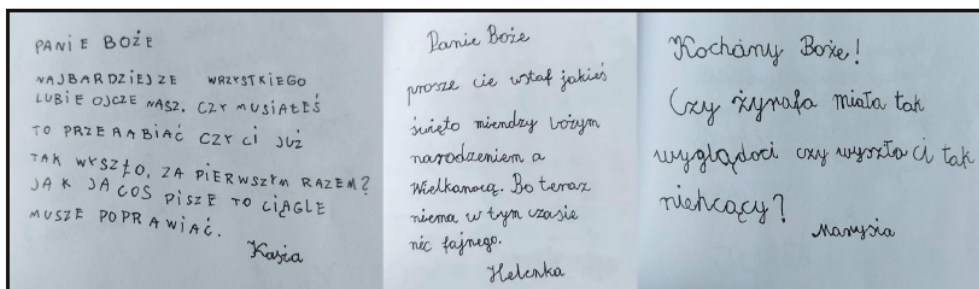 PANIE BOŻE
NAJBARDZIEJ ZE WRZYSTKIEGO
LUBIE OJCZE NASZ. CZY MUSIAŁEŚ
TO PRZERABIAĆ CZY CI JUŻ
TAK WYSZŁO, ZA PIERWSZYM RAZEM?
JAK JA COS PISZE TO CIĄGLE
MUSZE POPRAWIAĆ.
Kasia
Panie Boże
prosze cie wstaf jakieś
święto miendzy bożym
narodzeniem a
Wielkanocą. Bo teraz
niema w tym czasie
nic fajnego.
Helenka
Kochany Boże!
Czy żyrafa miała tak
wyglądoci czy wyszła ci tak
niehcący?
Marysia